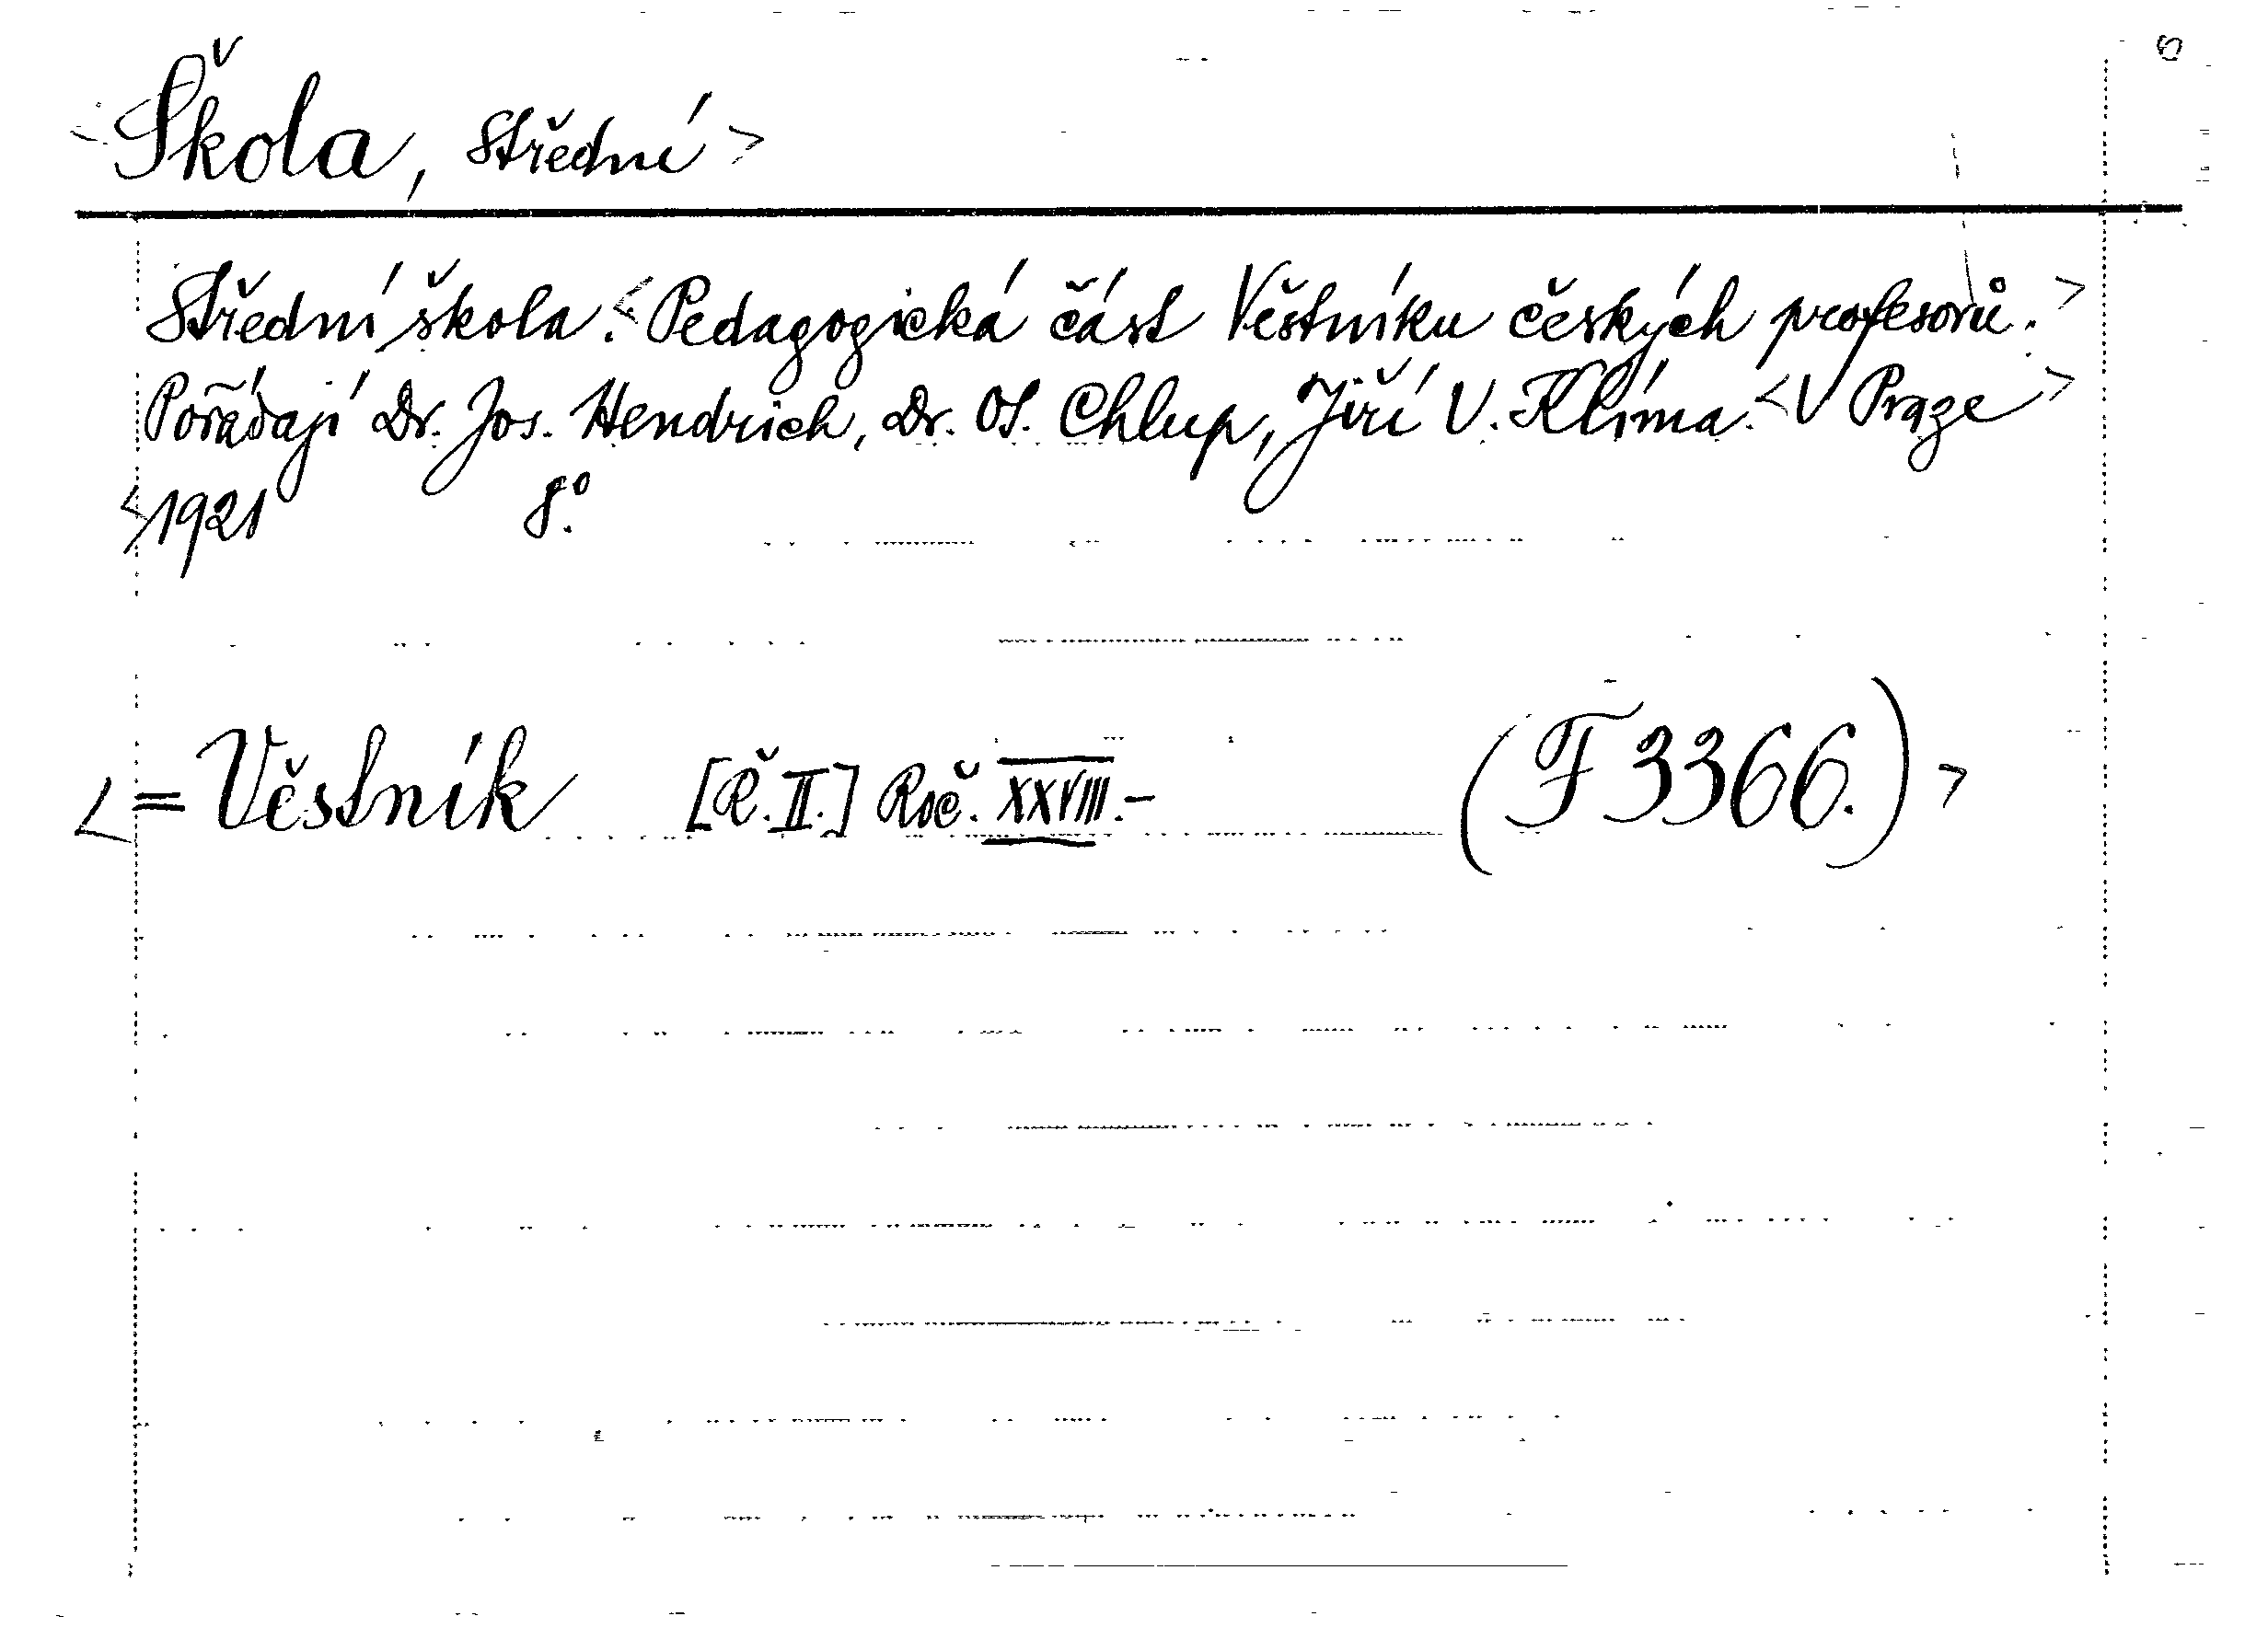 <Škola, střední>
Střední škola. <Pedagogická část Věstníku českých profesorů.>
Pořádají Dr. Jos. Hendrich, Dr. Ot. Chlup, Jiří V. Klíma. <V Praze>
<1921 8°.
<= Věstník [Ř. II.] Roč. XXVIII.- (F 3366.)>